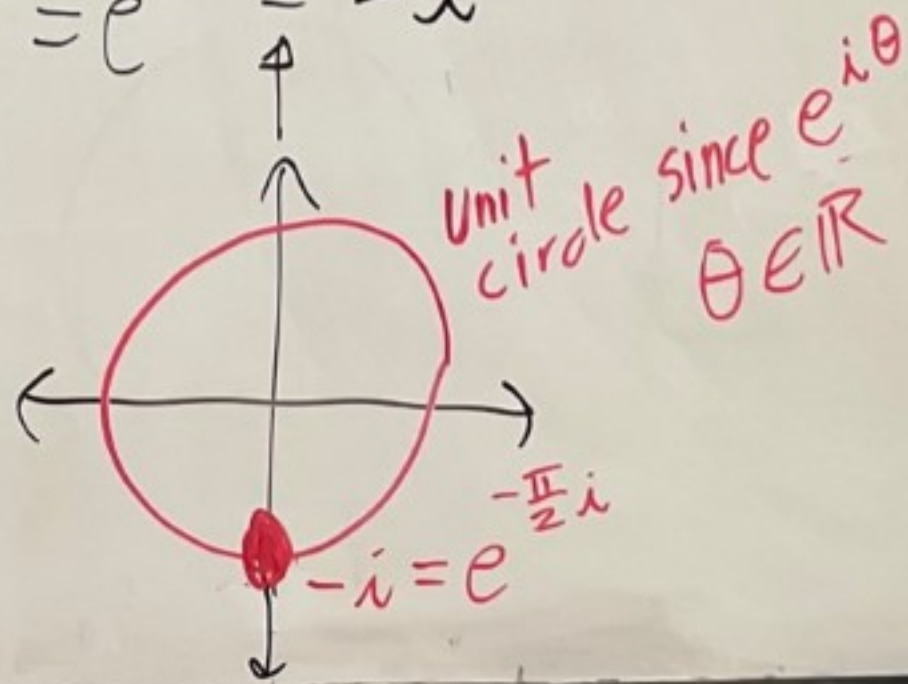 = e = - i
unit circle since e^{iθ}
θ ∈ ℝ
-i = e^{-\frac{π}{2} i}